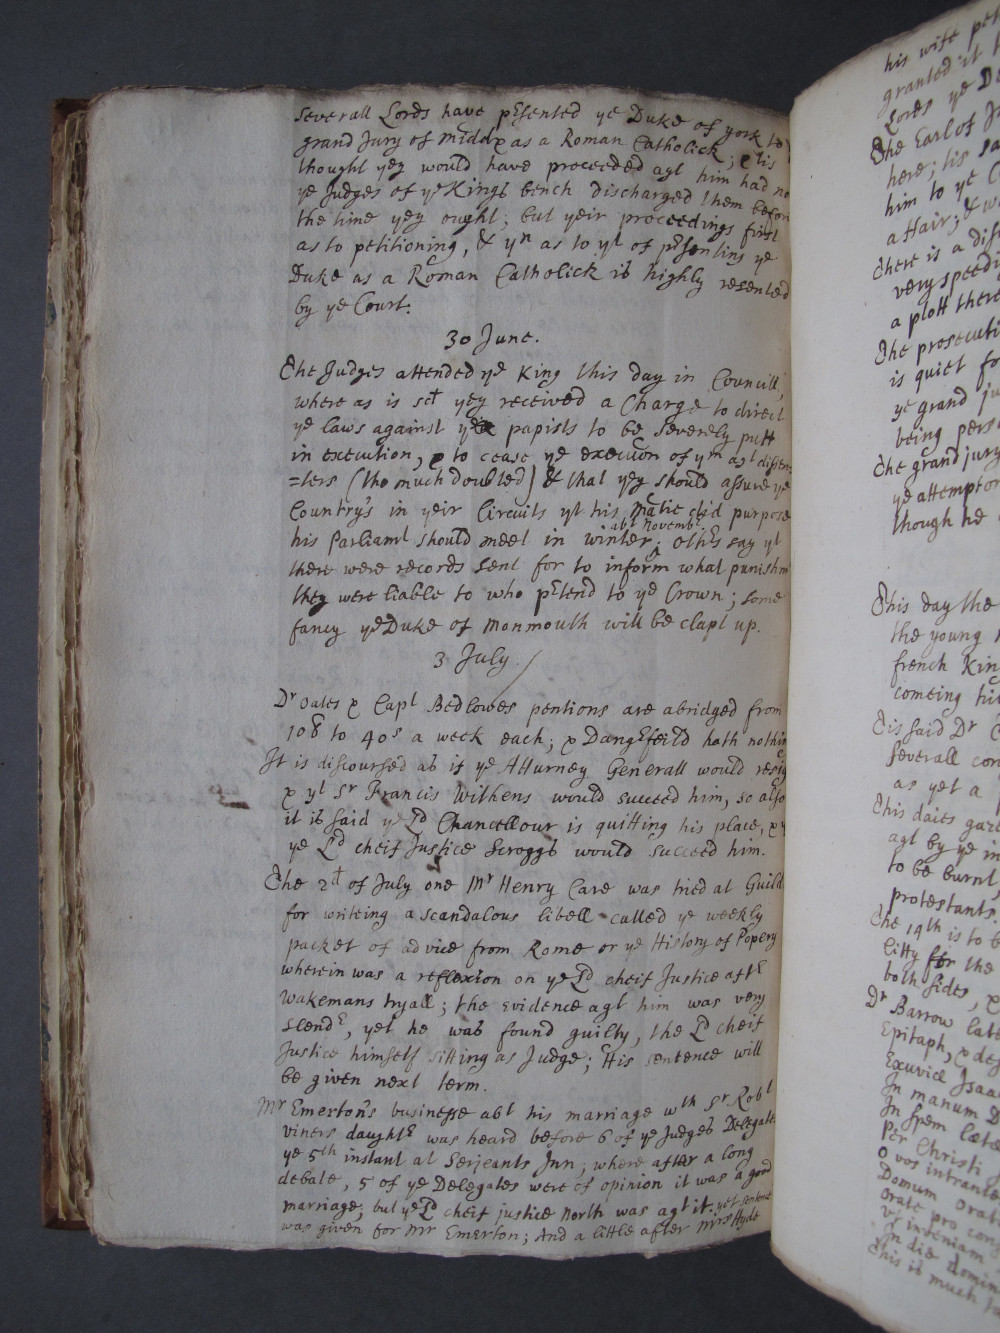 severall Lords have pesented ye Duke of york to
grand Jury of Middx as a Roman Catholick; & tis
thought yey would have proceeded agt him had no
ye Judges of ye Kings bench discharged them before
the time yey ought; but yeir proceedings first
as to petitioning, & yn as to yt of pesenting ye
Duke as a Roman Catholick is highly resented
by ye Court.
30 June.
The Judges attended ye King this day in Councill,
where as is sd yey received a Charge to direct
ye laws against ye papists to be severely putt
in execution, & to cease ye execution of ym agt dissen=
=ters (tho much doubled) & that yey should assure ye
Country's in yeir Circuits yt his Matie did purpose
his Parliamt should meet in winter; abt Novembr. Othrs say yt
there were records sent for to inform what punishm
they were liable to who petend to ye Crown; some
fancy ye Duke of Monmouth will be clapt up.
3 July.
Dr Oates & Capt Bedlowes pentions are abridged from
10s to 40s a week each; & Dangrfeild hath nothing
It is discoursed as if ye Atturney Generall would resig
& yt Sr Francis Withens would succeed him, so also
it is said ye Ld Chancellour is quitting his place, & yt
ye Ld cheif Justice Scroggs would succeed him.
The 2d of July one Mr Henry Care was tried at Guild
for writeing a scandalous libell called ye weekly
packet of advice from Rome or ye History of Popery
wherein was a reflexion on ye Ld cheif Justice aftr
Wakemans tryall; the evidence agt him was very
slendr, yet he was found guilty, the Ld cheif
Justice himself sitting as Judge; His sentence will
be given next term.
Mr Emerton's businesse abt his marriage wth Sr Robt
viners daughtr was heard before 6 of ye Judges Delegate
ye 5th instant at Serjeants Inn; where after a long
debate, 5 of ye Delegates were of opinion it was a good
marriage, but ye Ld cheif justice North was agt it. yet sentence
was given for Mr Emerton; And a little after Mrs Hyde
his wife pet
granted it
Lords ye D
The Earl of
here; tis sa
him to ye C
affair; & w
There is a dis
very speedi
a plott there
The prosecuti
is quiet fo
ye grand ju
being pers
The grand jury
ye attempt or
though he
This day the
the young
french King
comeing hi
Tis said Dr
severall con
as yet a
This daies gaze
agt by ye in
to be burnt
protestants
The 14th is to b
litty for the
both sides, &
Dr Barrow late
Epitaph, & des
Exuviæ Isaa
In manum D
In spem læta
Per Christi
O vos intrante
Domum orat
Orate pro con
vt inveniam
In die domin
This is much